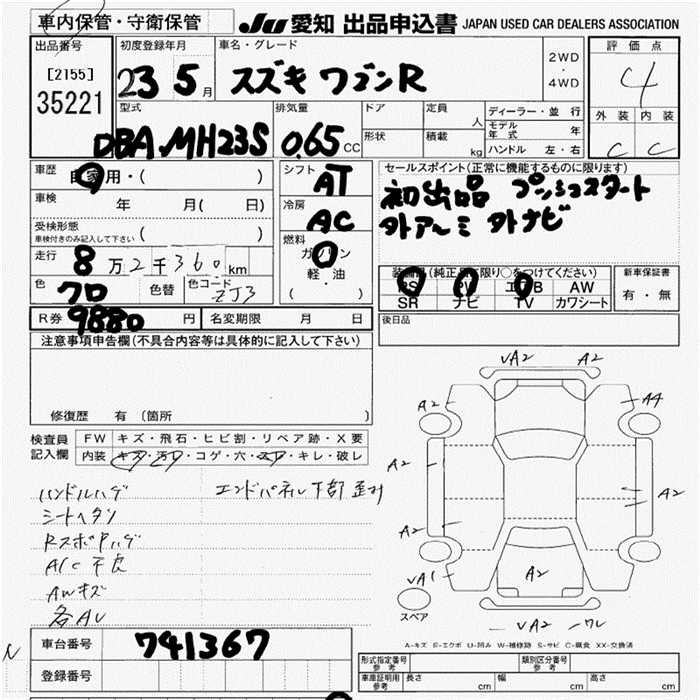 車内保管・守衛保管
JU 愛知 出品申込書 JAPAN USED CAR DEALERS ASSOCIATION
出品番号 初度登録年月 車名・グレード 2WD ・ 4WD 評価点
[2155] 35221 23 5月 スズキ ワゴンR 4
型式 排気量 ドア 定員 人 ディーラー・並行 外装 内装
モデル年式 年
DBA MH23S 0.65 CC 形状 積載 kg ハンドル 左・右 C C
車歴 自家用・( ) シフト AT セールスポイント(正常に機能するものに限ります)
車検 年 月( 日) 冷房 AC 初出品 プッシュスタート
受検形態 車検付きのみ記入して下さい ( ) 燃料 外アルミ 外ナビ
走行 8万2千360km ガソリン
軽・油
( )
色 クロ 色替 色コード ZJ3
装備品(純正品に限り○をつけてください) 新車保証書
PS PW エアB AW 有・無
SR ナビ TV カワシート
R券 9880円 名変期限 月 日 後日品
注意事項申告欄(不具合内容等は具体的に記入して下さい)
修復歴 有 (箇所
検査員記入欄 FW キズ・飛石・ヒビ割・リペア跡・X要
内装 キズ・汚レ・コゲ・穴・スレ・キレ・破レ
ハンドルハゲ エンドパネル下部歪み
シートヘタリ
A/C不良
AWキズ
各AU
VA2 A2
A2 A4
A2 A2
A2
VA1 A2
スペア
VA2 ワレ
A-キズ E-エクボ U-凹み W-補修跡 S-サビ C-腐食 XX-交換済
車台番号 741367
登録番号
型式指定番号 参考 類別区分番号 参考
車庫証明用 参考 長さ cm 幅 cm 高さ cm